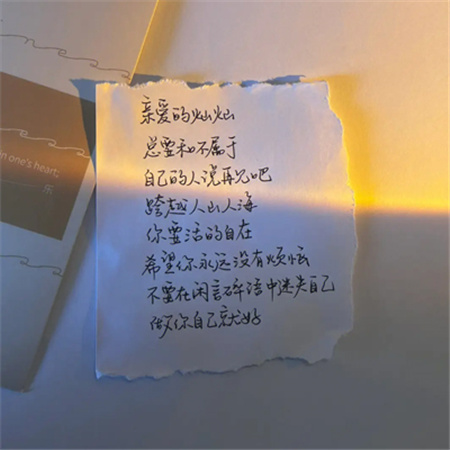 in one's heart;
乐
亲爱的灿灿
总要和不属于
自己的人说再见吧
跨越人山人海
你要活的自在
希望你永远没有烦恼
不要在闲言碎语中迷失自己
做你自己就好